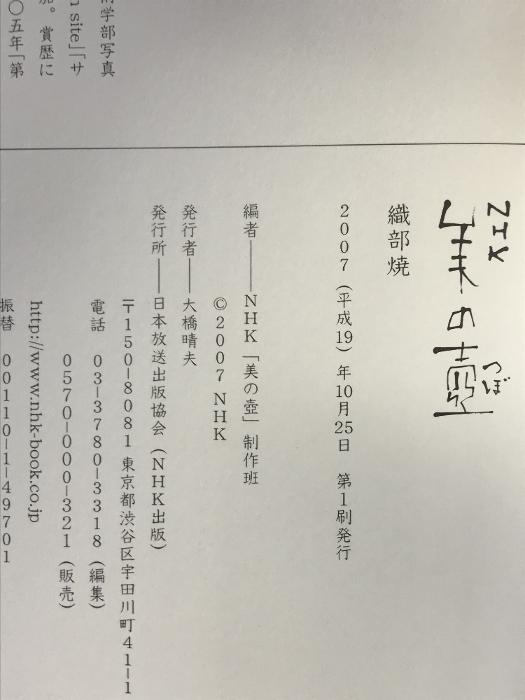 術学部写真
n site」「サ
。賞歴に
〇五年「第
NHK
美の壺
つぼ
織部焼
2007（平成19）年10月25日　第1刷発行
編者――NHK「美の壺」制作班
©2007 NHK
発行者――大橋晴夫
発行所――日本放送出版協会（NHK出版）
〒150-8081 東京都渋谷区宇田川町41-1
電話　03-3780-3318（編集）
0570-000-321（販売）
http://www.nhk-book.co.jp
振替　00110-1-49701